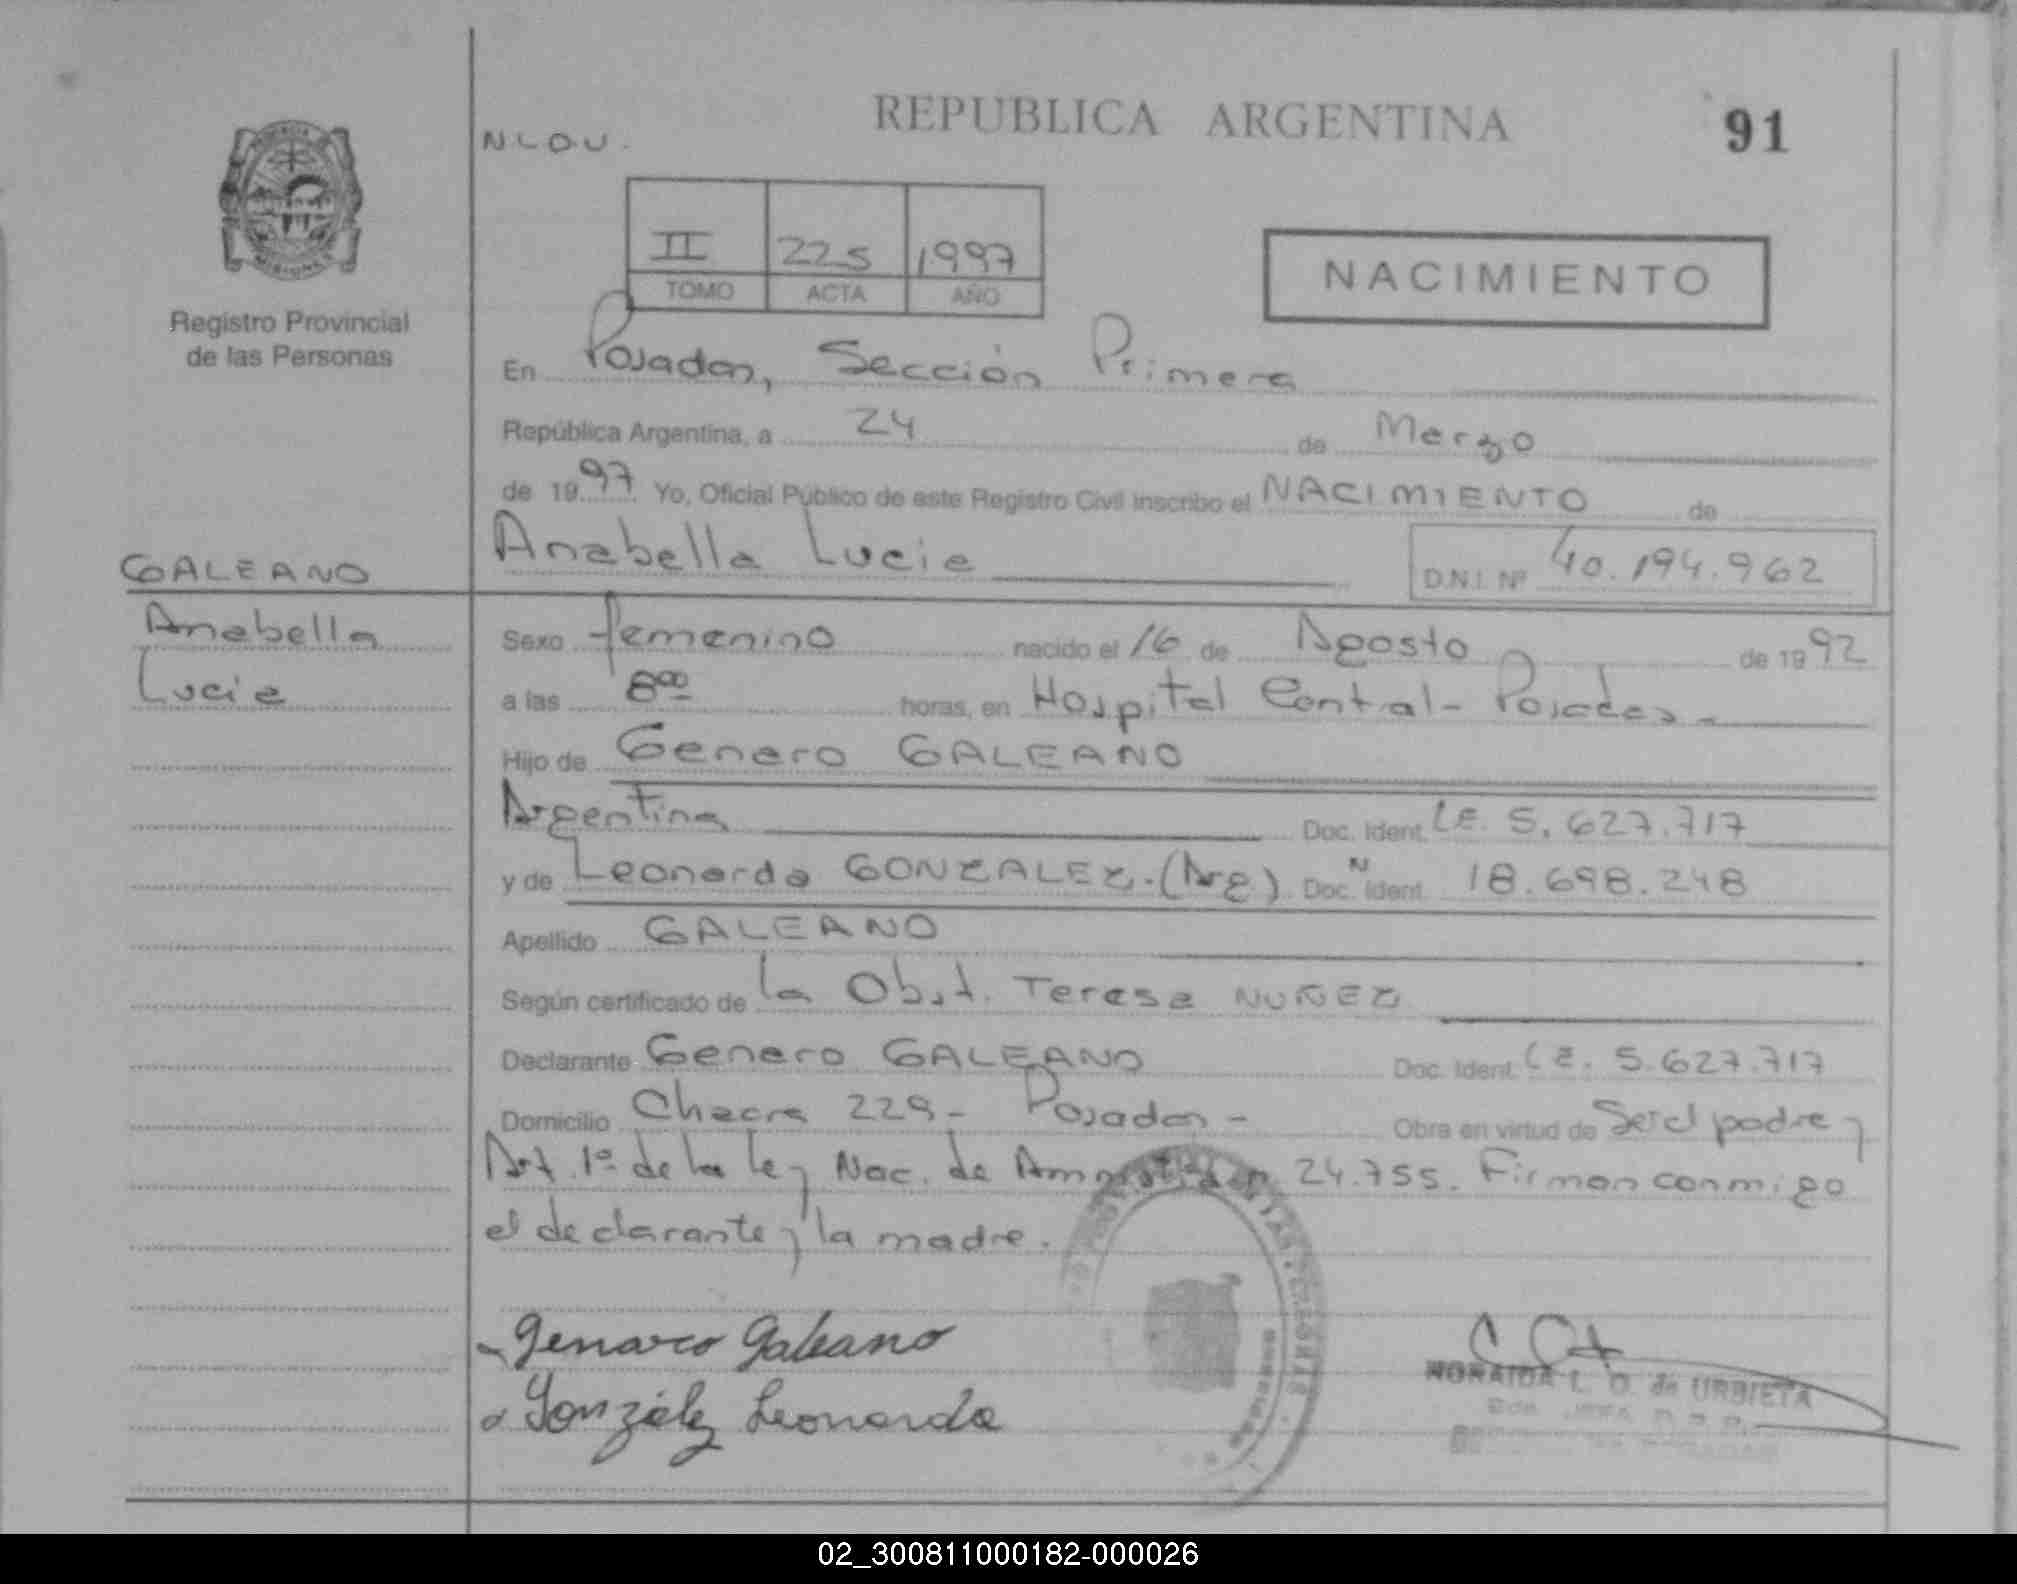 REPUBLICA ARGENTINA
91
NLOU.
II 225 1997
TOMO ACTA AÑO
NACIMIENTO
MISIONES
Registro Provincial
de las Personas
En Posadas, Sección Primera
República Argentina, a 24 de Marzo
de 1997 Yo, Oficial Público de este Registro Civil inscribo el NACIMIENTO de
GALEANO
Anabella Lucia
D.N.I. Nº 40.194.962
Anabella
Lucia
Sexo femenino nacido el 16 de Agosto de 1992
a las 8 00 horas, en Hospital Central - Posadas -
Hijo de Genaro GALEANO
Argentina Doc. Ident. LE. 5.627.717
y de Leonarda GONZALEZ. (Arg) Doc. Ident. N 18.698.248
Apellido GALEANO
Según certificado de la Obst. Teresa NUÑEZ
Declarante Genaro GALEANO Doc. Ident. LE. 5.627.717
Domicilio Chacra 229 - Posadas - Obra en virtud de Ser el padre y
Art. 1º de la ley Nac. de Amnistia 24.755. Firman conmigo
el declarante y la madre.
Genaro Galeano
González Leonarda
NORAIDA L. O. de URBIETA
02_300811000182-000026